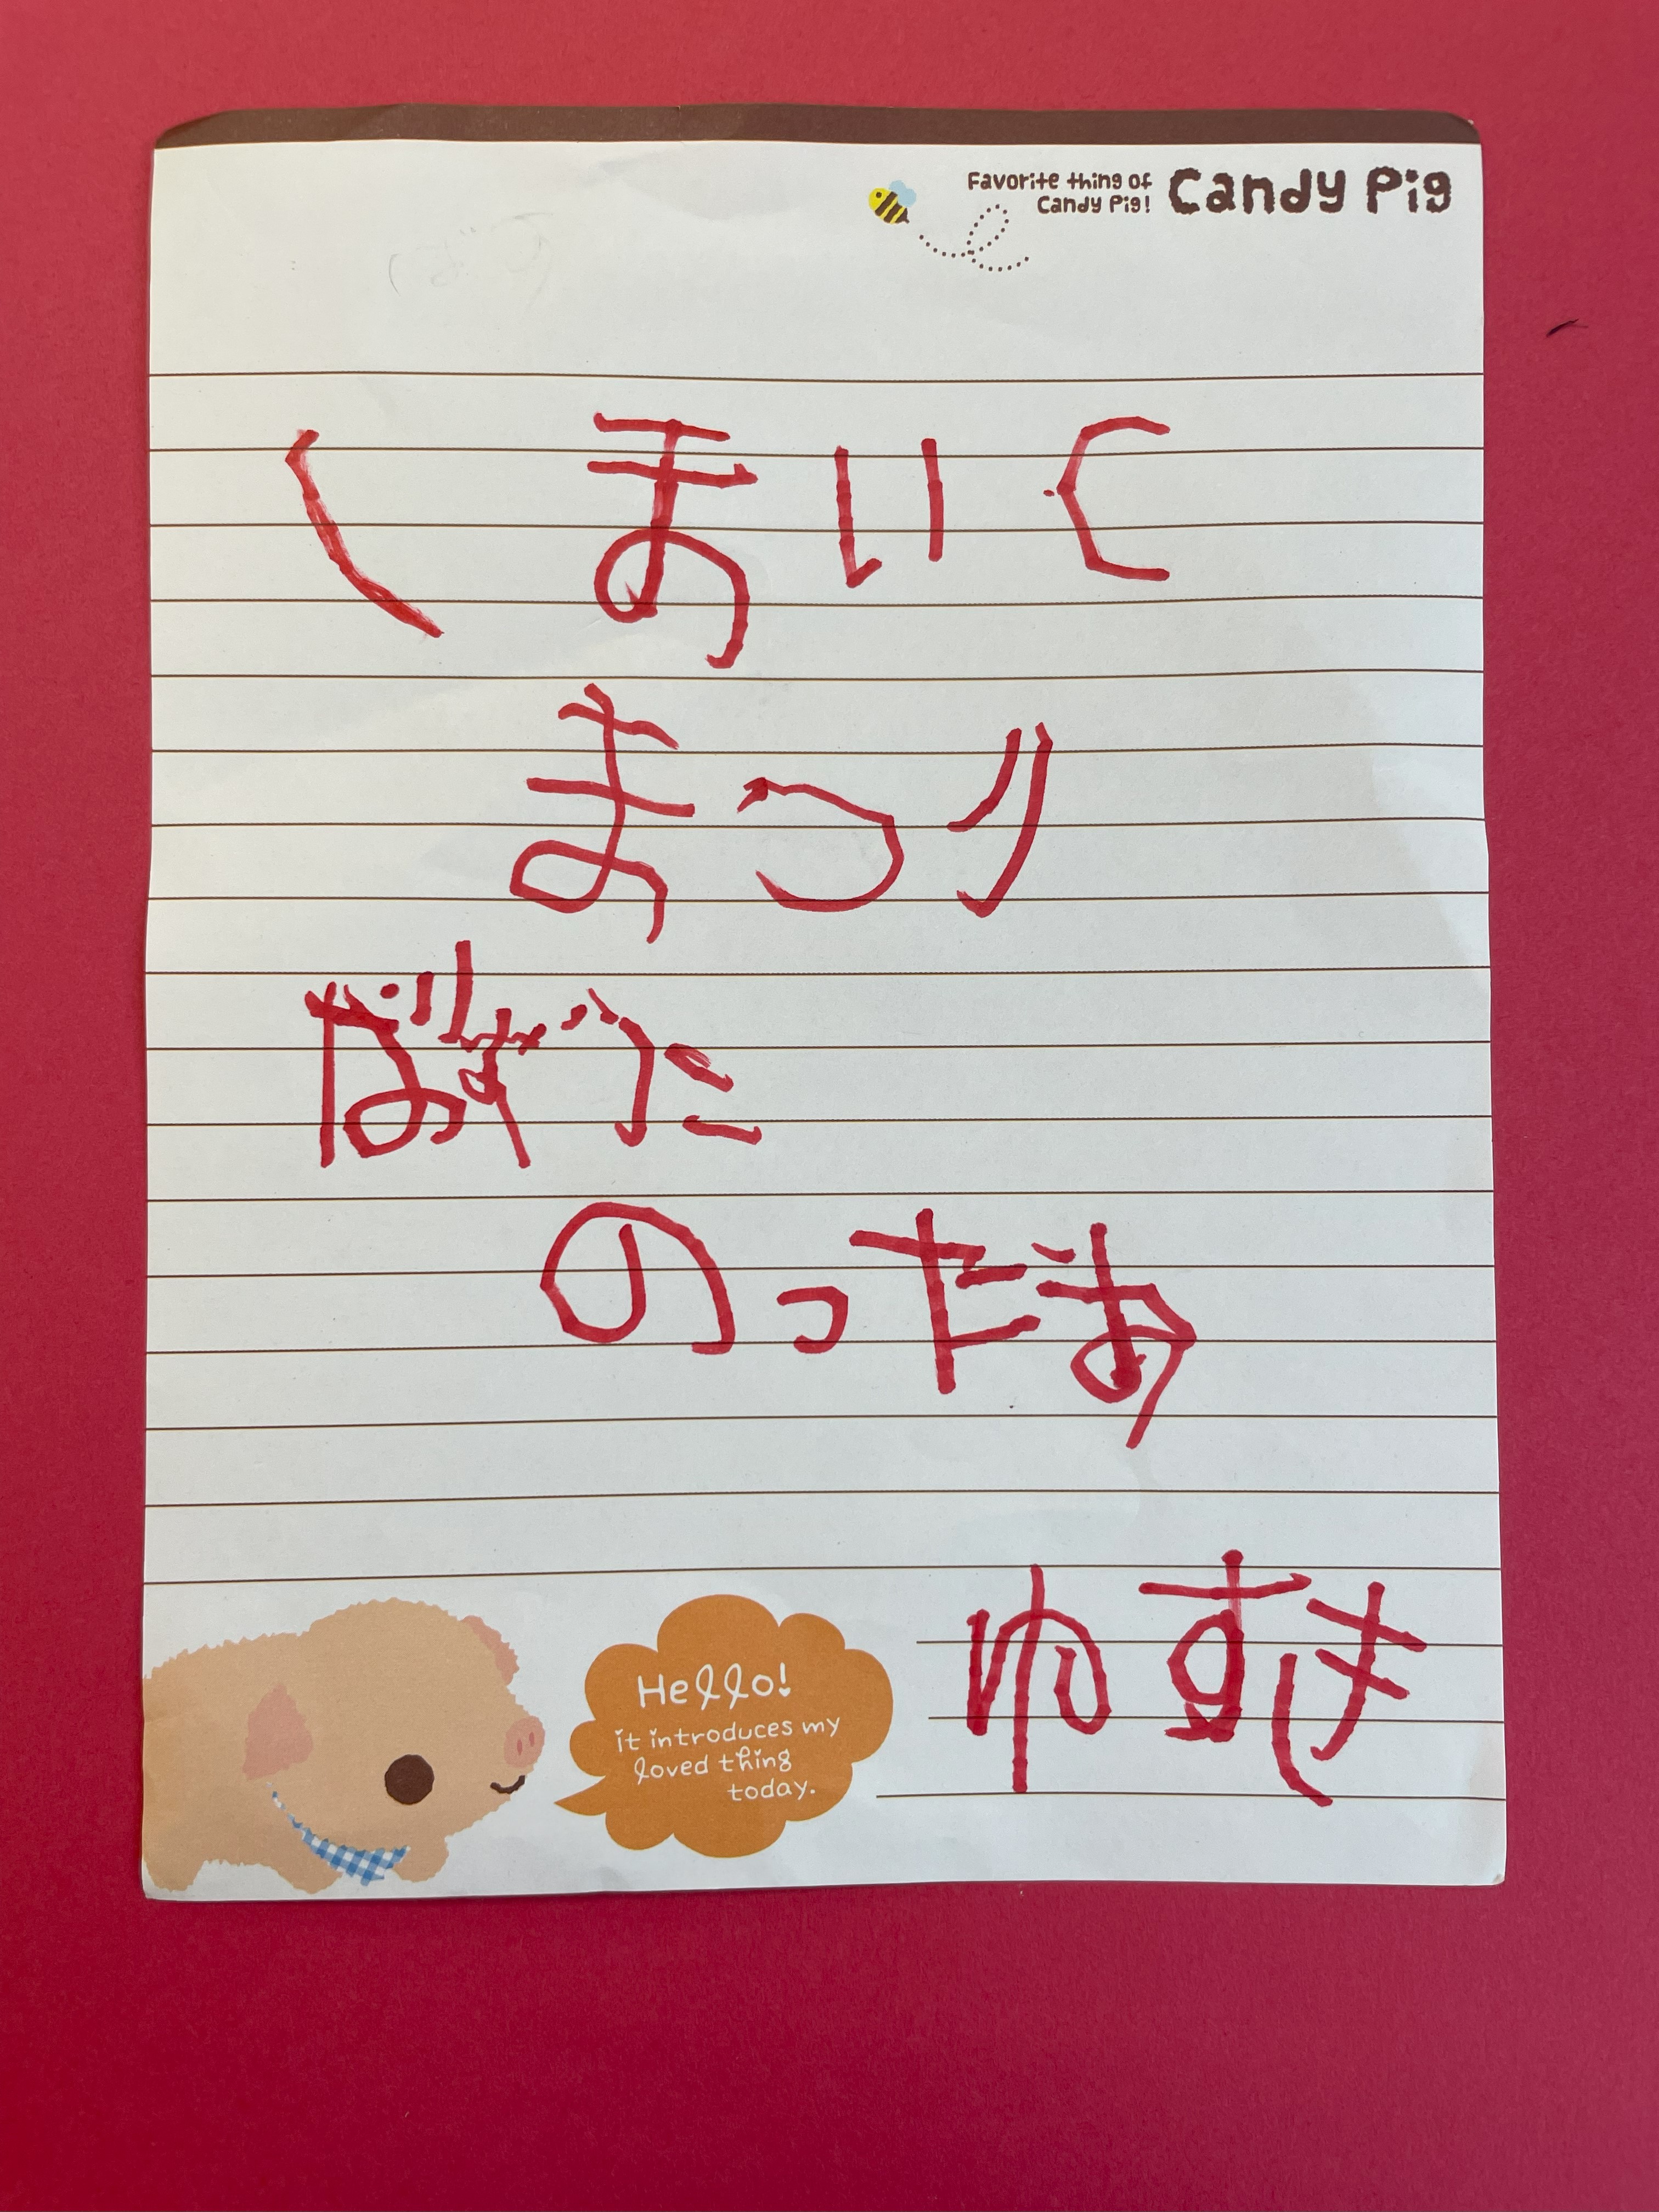 Favorite thing of
Candy Pig!
Candy Pig
まいく
まつり
のったあ
ゆすき
Hello!
it introduces my
loved thing
today.